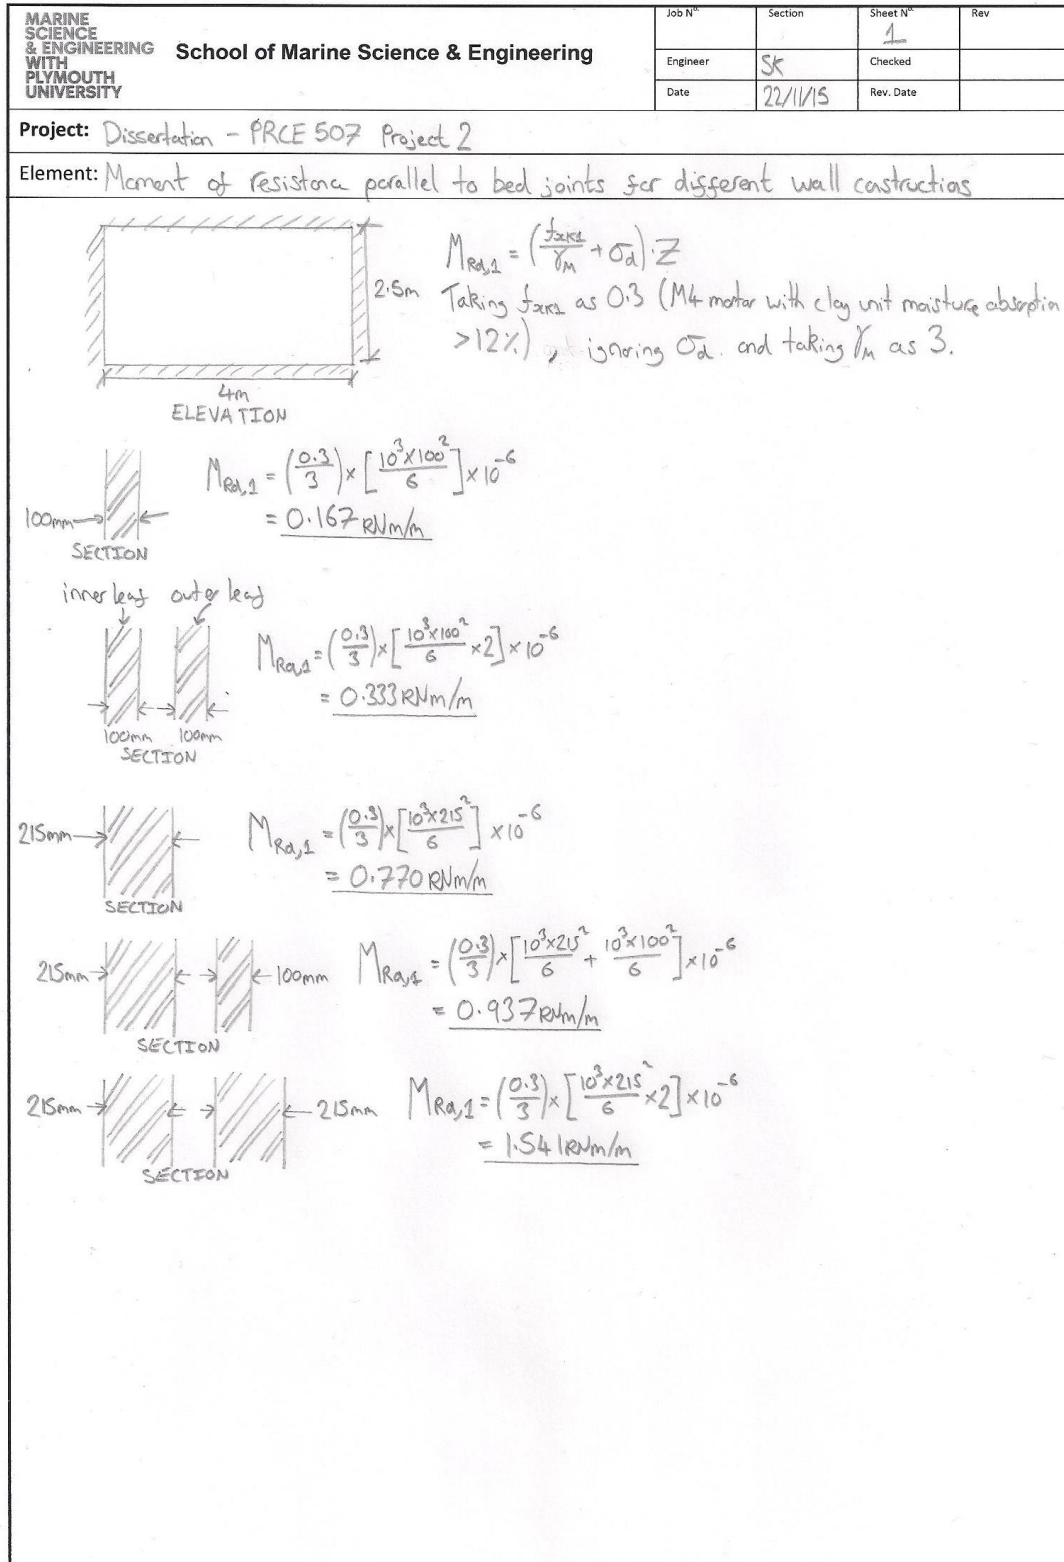 MARINE
SCIENCE
& ENGINEERING
WITH
PLYMOUTH
UNIVERSITY
School of Marine Science & Engineering
Job Nº. Section Sheet Nº. Rev
1
Engineer SK Checked
Date 22/11/15 Rev. Date
Project: Dissertation - PRCE 507 Project 2
Element: Moment of resistance parallel to bed joints for different wall constructions
M_Rd,1 = (f_xk1/γ_M + σ_d)·Z
2.5m Taking f_xk1 as 0.3 (M4 mortar with clay unit moisture absorption
>12%), ignoring σ_d. and taking γ_M as 3.
4m
ELEVATION
M_Rd,1 = (0.3/3) × [10³×100²/6] × 10⁻⁶
100mm = 0.167 kNm/m
SECTION
inner leaf outer leaf
M_Rd,1 = (0.3/3) × [10³×100²/6 × 2] × 10⁻⁶
= 0.333 kNm/m
100mm 100mm
SECTION
215mm M_Rd,1 = (0.3/3) × [10³×215²/6] × 10⁻⁶
= 0.770 kNm/m
SECTION
215mm 100mm M_Rd,1 = (0.3/3) × [10³×215²/6 + 10³×100²/6] × 10⁻⁶
= 0.937 kNm/m
SECTION
215mm 215mm M_Rd,1 = (0.3/3) × [10³×215²/6 × 2] × 10⁻⁶
= 1.541 kNm/m
SECTION